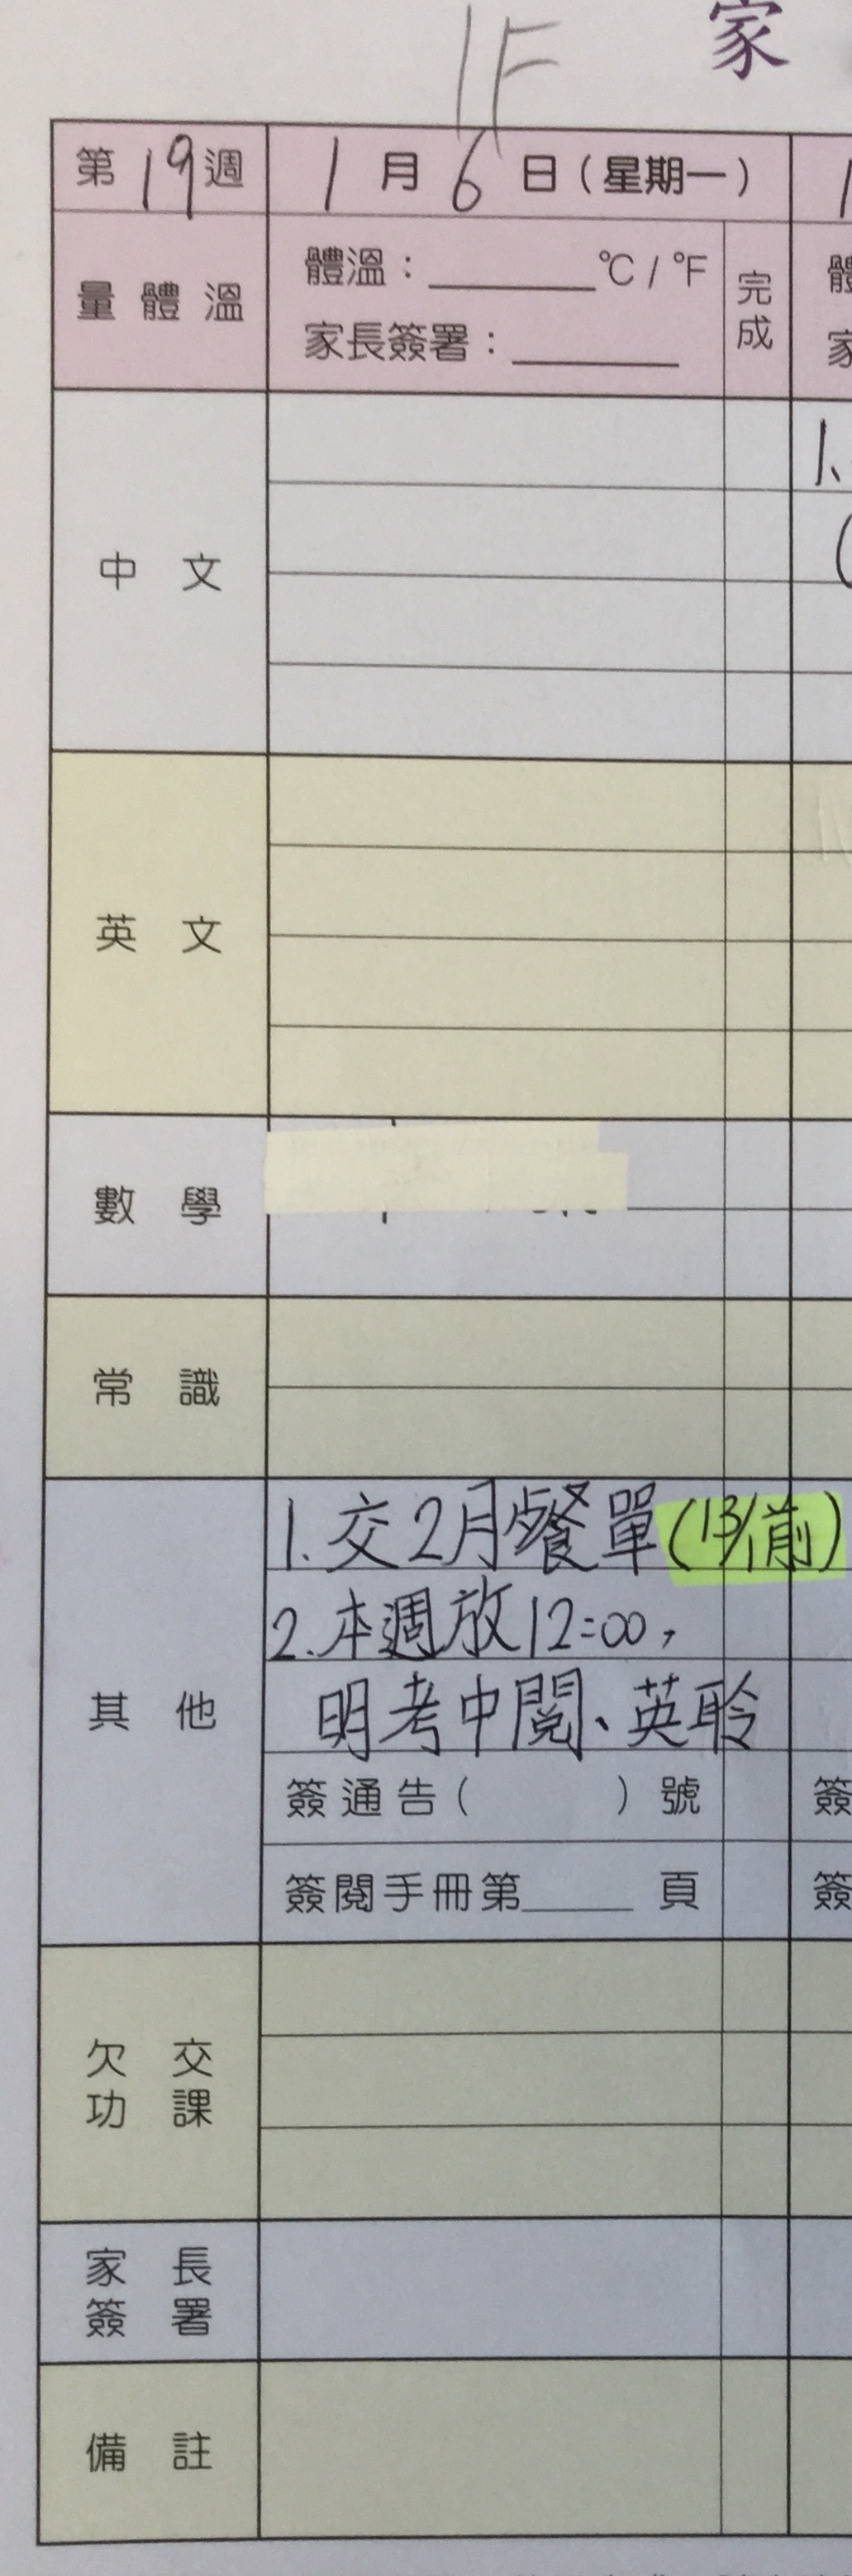 1F
家
第19週 1月6日(星期一)
量體溫 體溫:______°C/°F 完成
家長簽署:______
中文
英文
數學
常識
其他 1.交2月餐單(13/1前)
2.本週放12:00,
明考中閱、英聆
簽通告( )號
簽閱手冊第______頁
欠交功課
家長簽署
備註